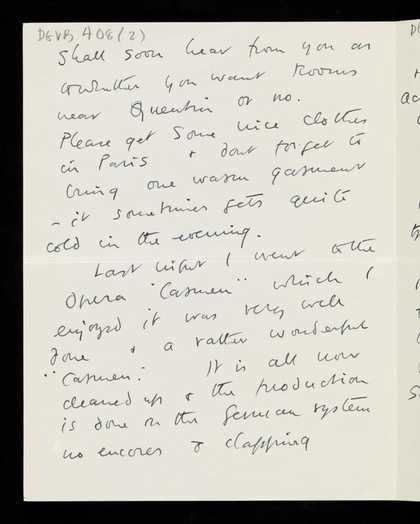 DEVB 408 (2)
Shall soon hear from you as
to whether you want Rooms
near Quentin or no.
Please get some nice clothes
in Paris & dont forget to
bring one warm garment
– it sometimes gets quite
cold in the evening.
Last night I went to the
Opera "Carmen" which I
enjoyed it was very well
done & a rather wonderful
"Carmen." It is all now
cleaned up & the production
is done on the German system
no encores & clapping